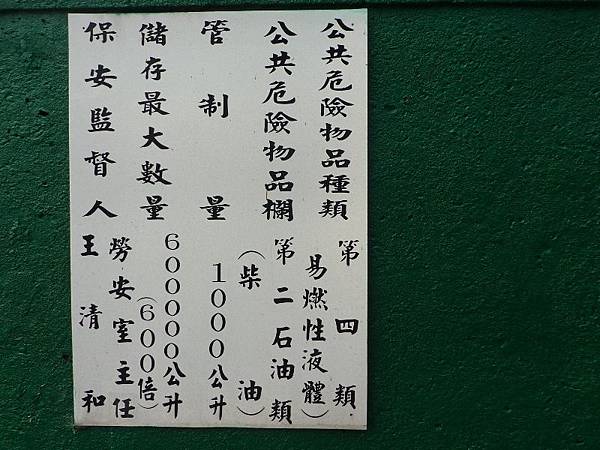 公共危險物品種類 第四類
(易燃性液體)
公共危險物品欄 第二石油類
(柴油)
管制量 1000公升
儲存最大數量 600000公升
(600倍)
保安監督人 勞安室主任
王清和